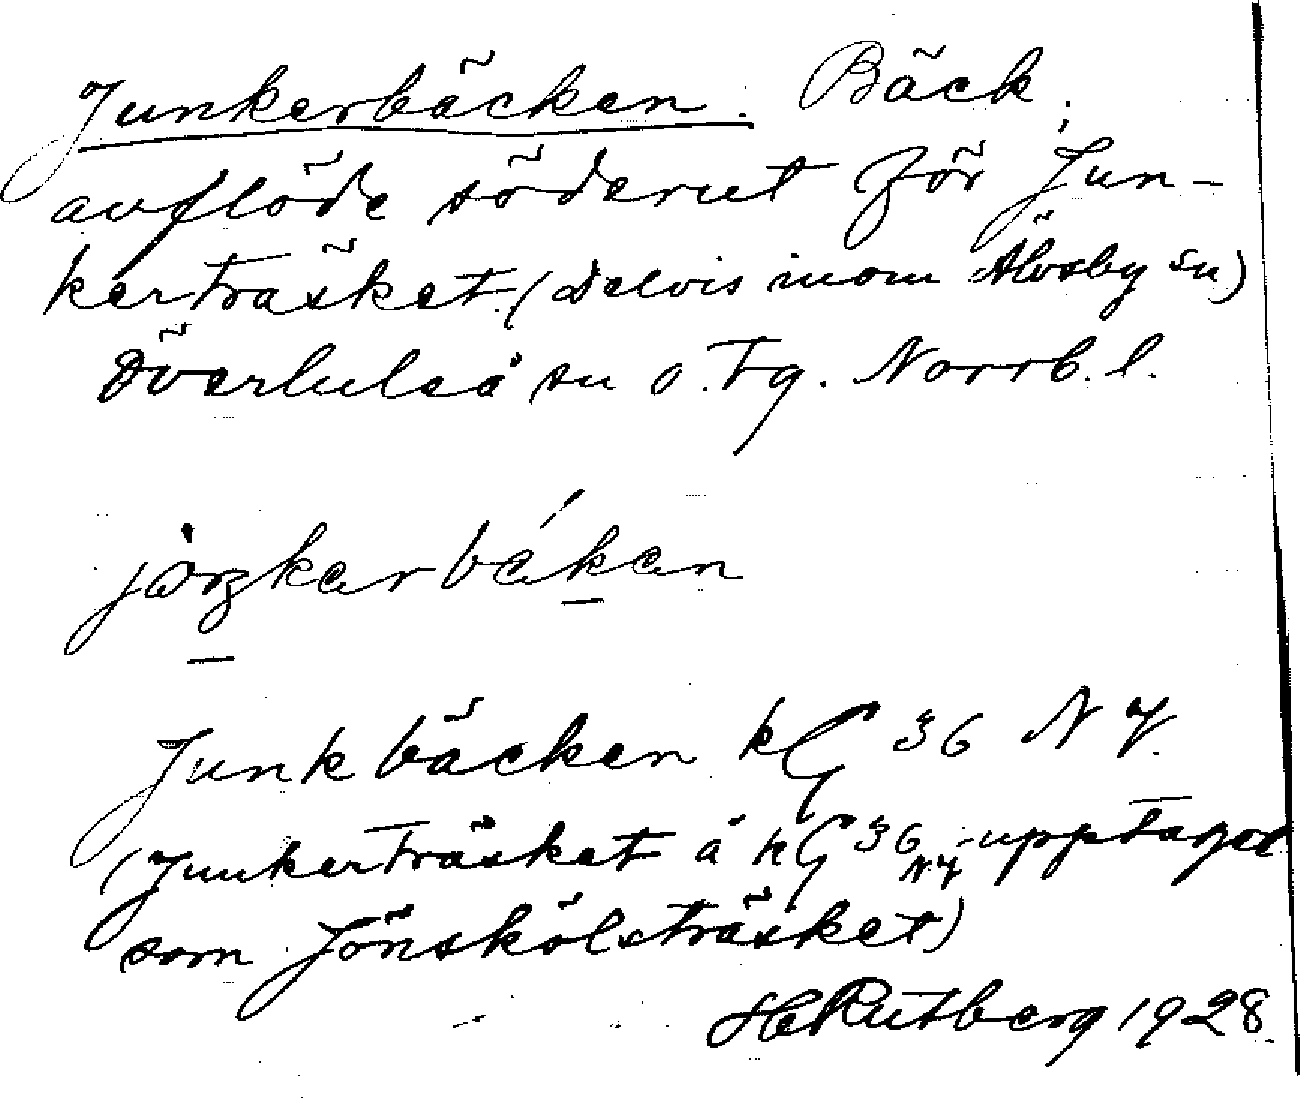 Junkerbäcken. Bäck,
avflöde söderut för Jun-
kerträsket. (delvis inom Älvsby sn)
Överluleå sn o. Tg. Norrb. l.
Junkbäcken kG 36 NV.
(Junkerträsket å kG 36 NV upptaget
som Jönskölsträsket)
H Rutberg 1928